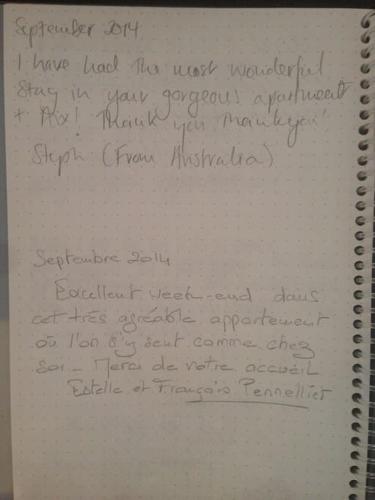 September 2014
I have had the most wonderful
stay in your gorgeous apartment
+ Aix! Thank you thankyou!
Steph (From Australia)
Septembre 2014
Excellent week-end dans
cet très agréable appartement
où l'on s'y sent comme chez
soi - Merci de votre accueil
Estelle et François Pennellier